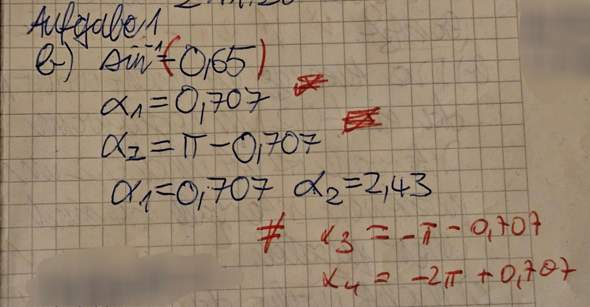 Aufgabe 1
b) sin⁻¹(0,65)
α₁ = 0,707
α₂ = π - 0,707
α₁ = 0,707 α₂ = 2,43
# α₃ = -π - 0,707
α₄ = -2π + 0,707